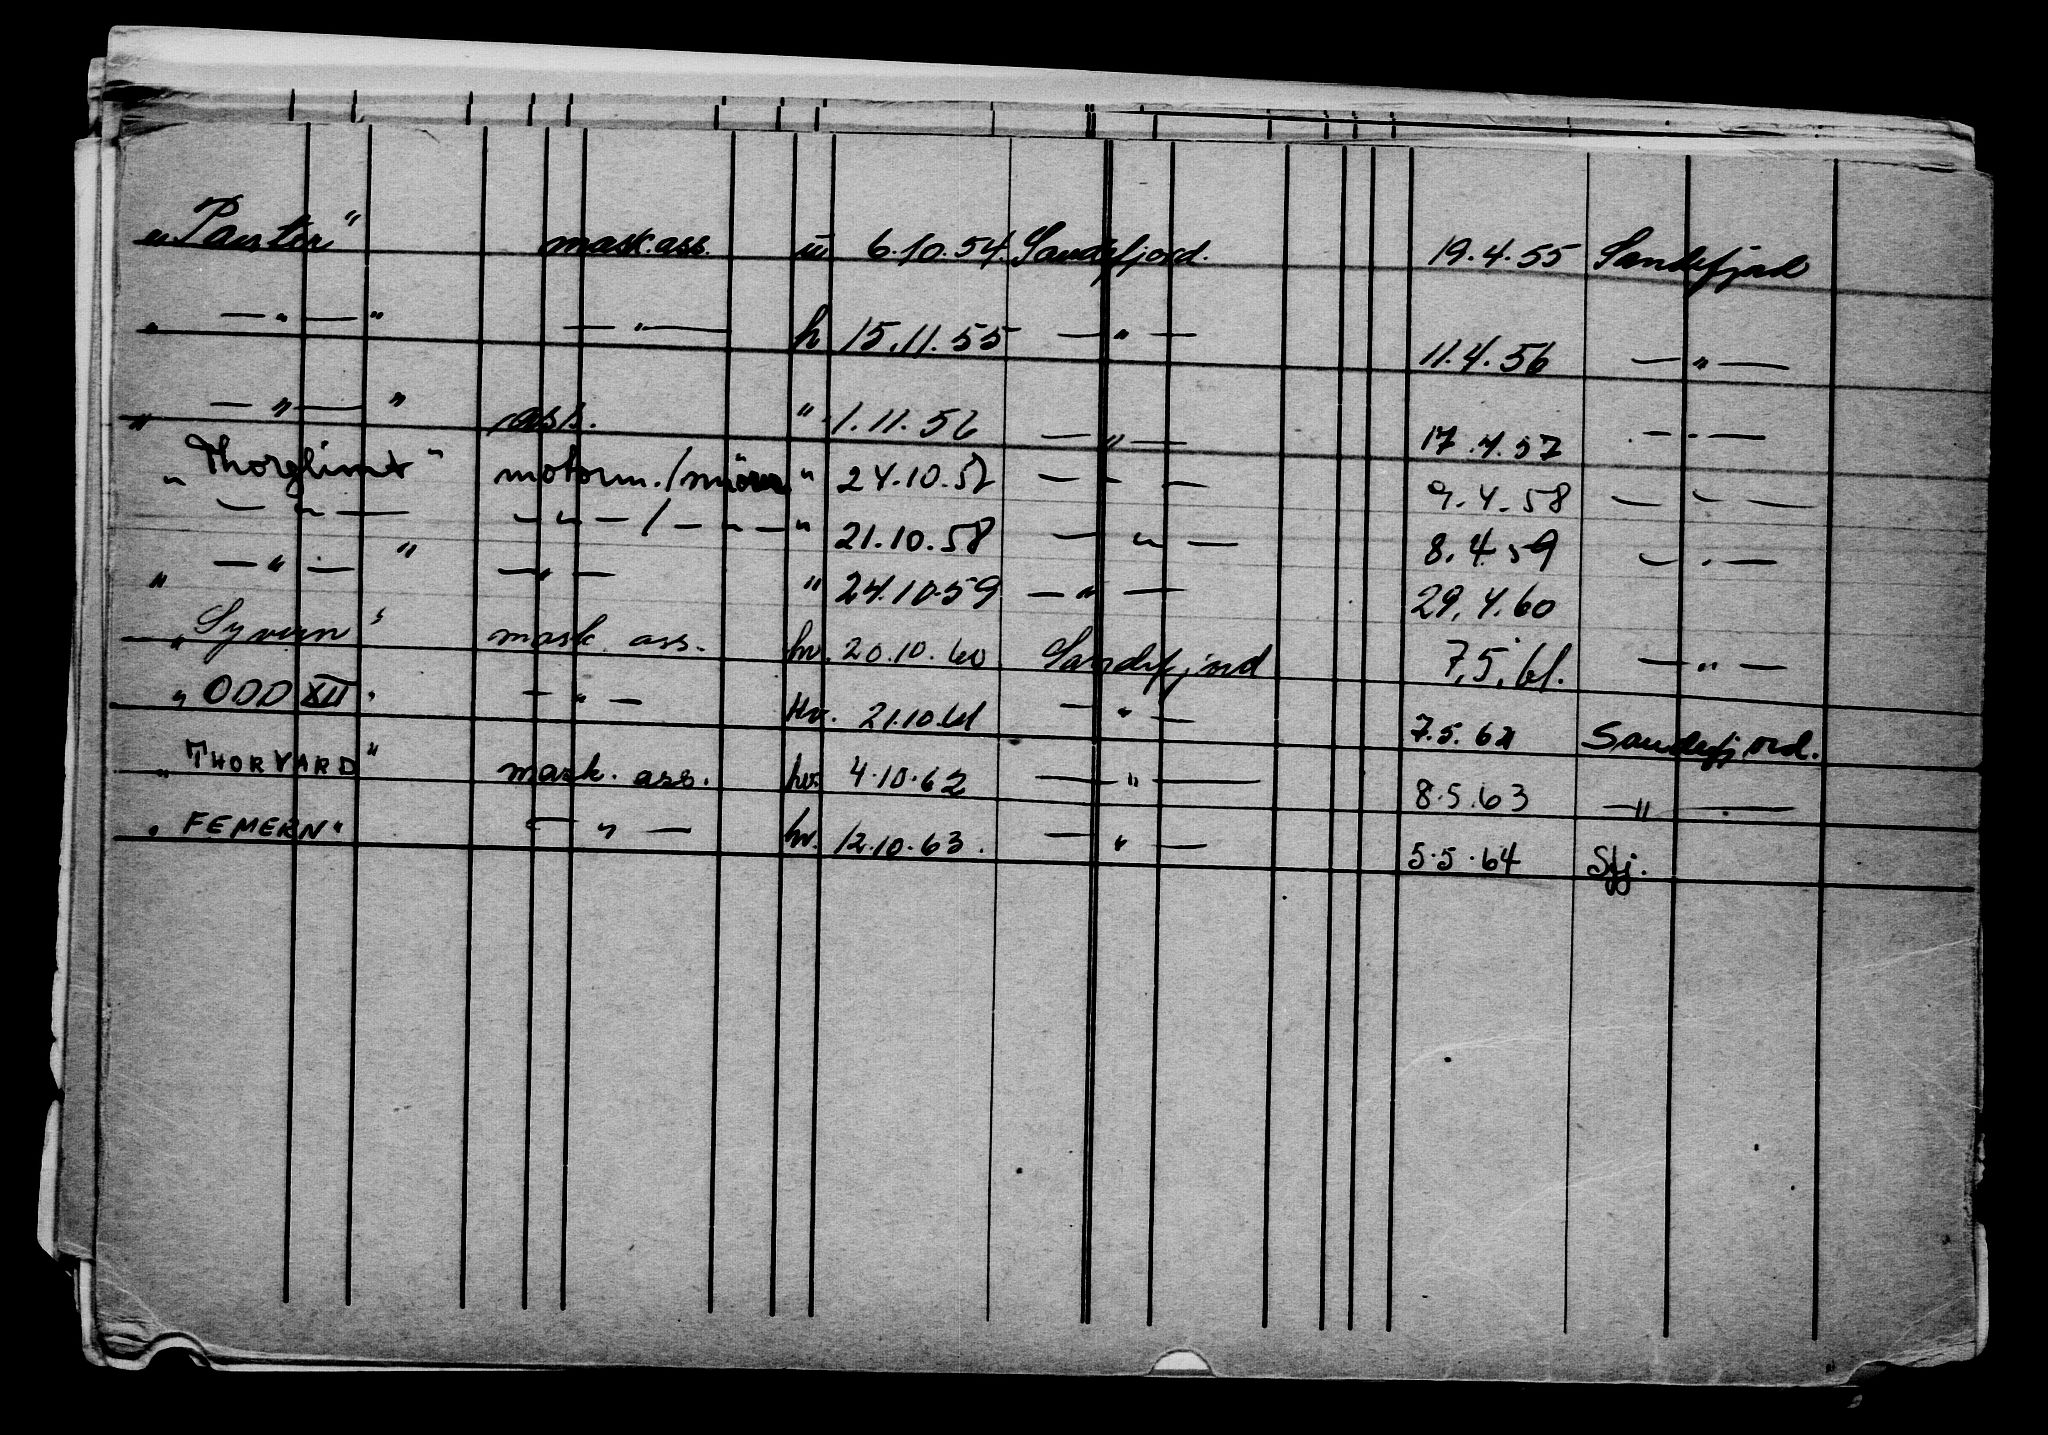 „Panter" mask.ass. u 6.10.54. Sandefjord. 19.4.55 Sandefjord
„ — „ — " — „ — h 15.11.55 — " — 11.4.56 — " —
„ — „ — " ass. " 1.11.56 — " — 17.4.57 — " —
„ Thorglimt " motorm./ " 24.10.57 — " — 9.4.58 — " —
— " — — " — / — " — " 21.10.58 — " — 8.4.59 — " —
„ — " — " — " — " 24.10.59 — " — 29.4.60
„ Syvern " mask. ass. hv. 20.10.60 Sandefjord 7.5.61. — " —
„ ODD XII " — " — Hv. 21.10.61 — " — 7.5.62 Sandefjord.
„ THORVARD " mask. ass. hv. 4.10.62 — " — 8.5.63 — " —
„ FEMERN " — " — hv. 12.10.63. — " — 5.5.64 Sfj.